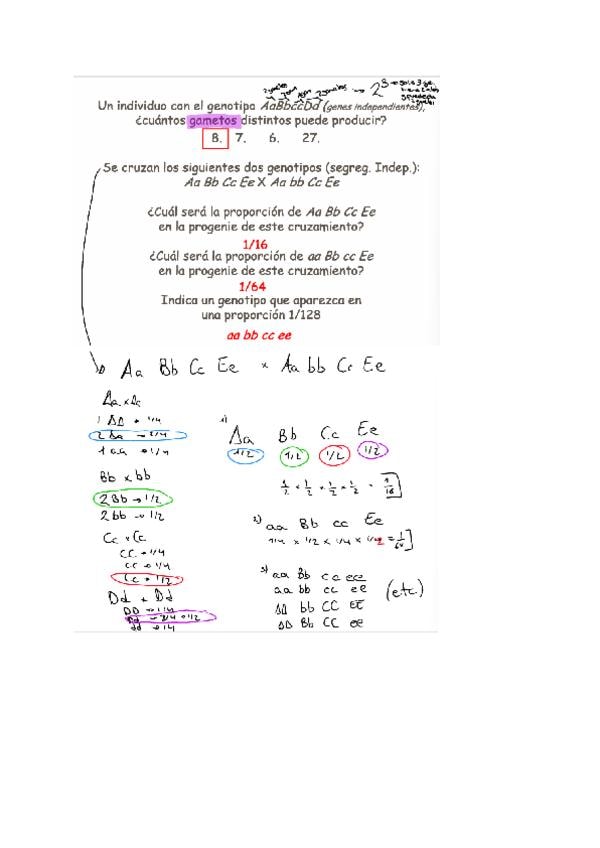 2 gametos 1gam 2 gametos → 2³ → solo 3 ge
Un individuo con el genotipo AaBbccDd (genes independientes),
¿cuántos gametos distintos puede producir?
8. 7. 6. 27.
Se cruzan los siguientes dos genotipos (segreg. Indep.):
Aa Bb Cc Ee X Aa bb Cc Ee
¿Cuál será la proporción de Aa Bb Cc Ee
en la progenie de este cruzamiento?
1/16
¿Cuál será la proporción de aa Bb cc Ee
en la progenie de este cruzamiento?
1/64
Indica un genotipo que aparezca en
una proporción 1/128
aa bb cc ee
Aa Bb Cc Ee × Aa bb Cc Ee
Aa x Aa
1 AA → 1/4
2 Aa → 2/4
1 aa → 1/4
Bb x bb
2 Bb → 1/2
2 bb → 1/2
Cc x Cc
CC → 1/4
cc → 1/4
Cc → 1/2
Dd x Dd
DD → 1/4
Dd → 2/4 → 1/2
dd → 1/4
1) Aa Bb Cc Ee
1/2 1/2 1/2 1/2
1/2 x 1/2 x 1/2 x 1/2 = 1/16
2) aa Bb cc Ee
1/4 x 1/2 x 1/4 x 1/2 = 1/64
3) aa Bb cc ee
aa bb cc ee (etc)
AA bb CC EE
AA Bb CC ee